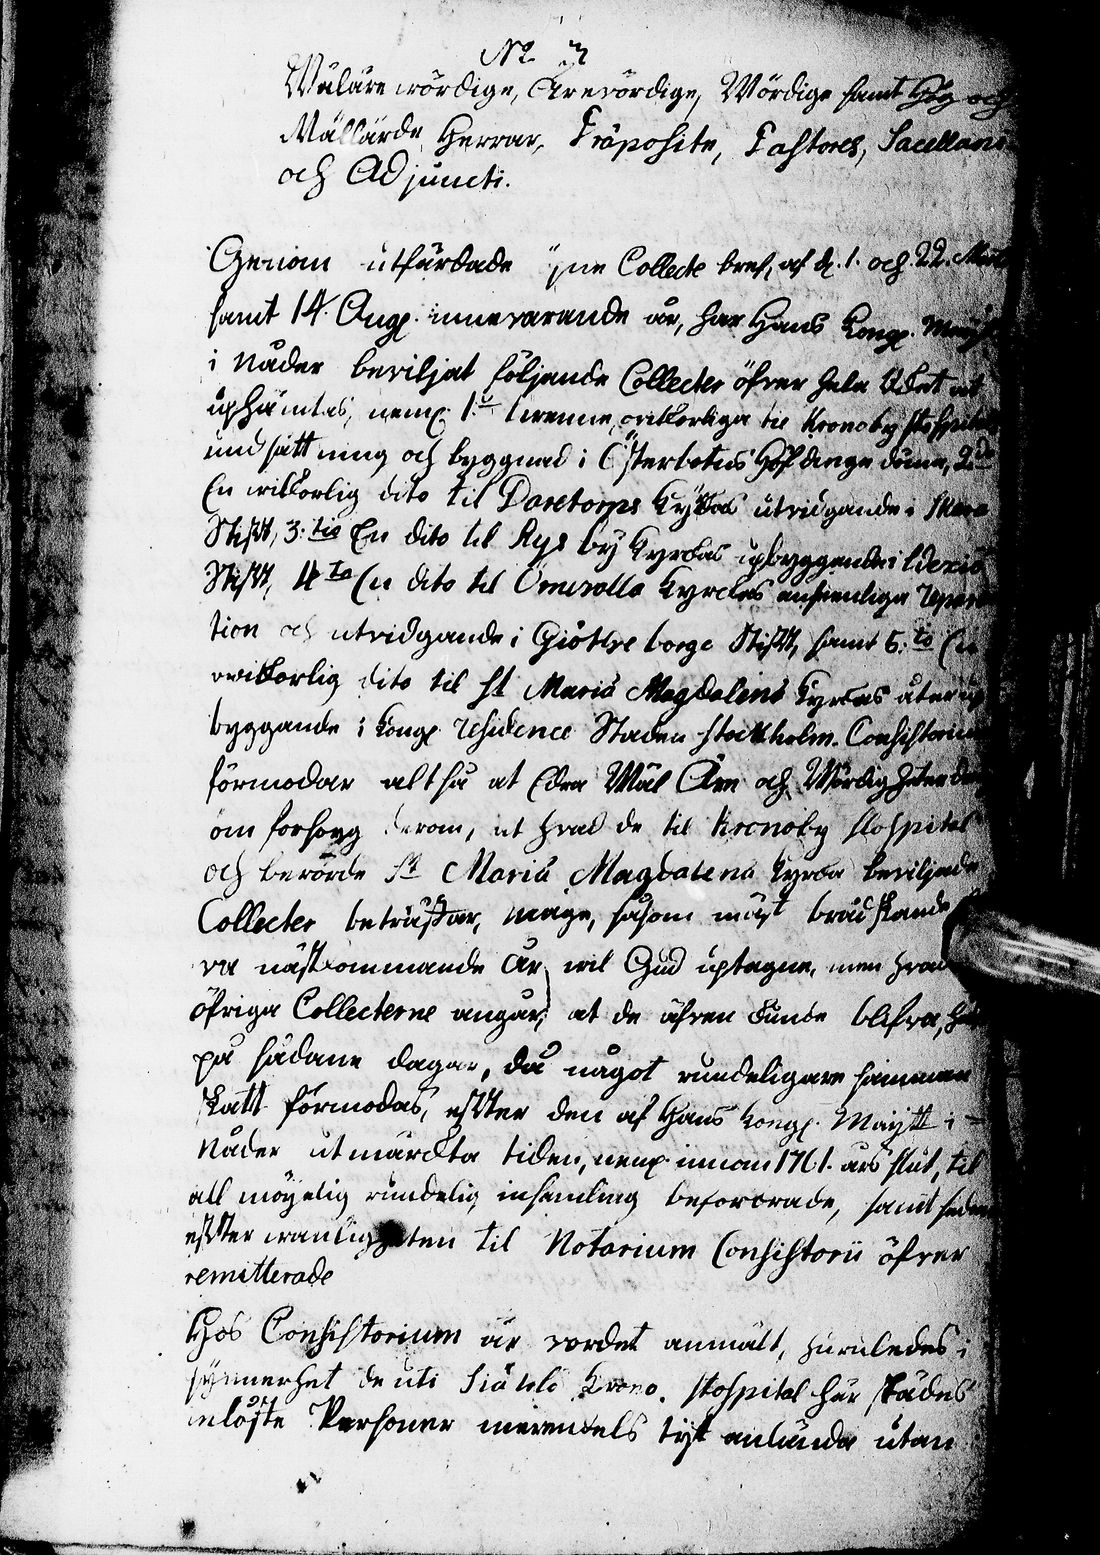 No 3
Wäläre wördige, Ärevördige, Wördige samt Hög och
Wällärde Herrar, Præposite, Pastores, Sacellani
och Adjuncti.
Genom utfärdade öpne Collecte bref, af d. 1. och 22. Martii
samt 14. Aug. innevarande år, har Hans Kongl. Maij:t
i Nåder beviljat följande Collecter öfver hela Riket at
uphämtas, neml. 1:o Twenne wilkorliga til Kronoby Hospitals
undsättning och byggnad i Österbotns Höfdinge döme, 2:do
En wilkorlig dito til Daretorps Kyrkas utvidgande i Skara
Stift, 3:tio En dito til Rys by Kyrckas upbyggende i Wexiö
Stift, 4:to En dito til Önnevalla Kyrckas ansenliga Repara
tion och utvidgande i Giötheborgs Stift, samt 5:to En
wilkorlig dito til St Mariä Magdalenä Kyrckas återup
byggande i Kongl. Residence Staden Stockholm. Consistorium
förmodar altså at Edra Wäl Äre och Wördigheter dra
om forsorg derom, at hvad de til Kronoby Hospital
och berörde St Mariä Magdalenä Kyrcka beviljade
Collecter beträffar, mage, såsom mäst brådskande
näst kommande år, wil Gud uptagne, men hvad
öfriga Collecterne angår, at de äfven kunde blifva,
på sådane dagar, då något rundeligare samman
skatt förmodas, effter den af Hans Kongl. Maijtt i
Nåder utmärckta tiden, neml. innom 1761. års slut, til
all möyelig rundelig insamling beforrade, samt sedan
effter wanligheten til Notarium Consistorii öfver
remitterade
Hos Consistorium är vordet anmält, huruledes i
synnerhet de uti Siählö Krono Hospital här städes
inlöste Personer merendels tijt anlända utan